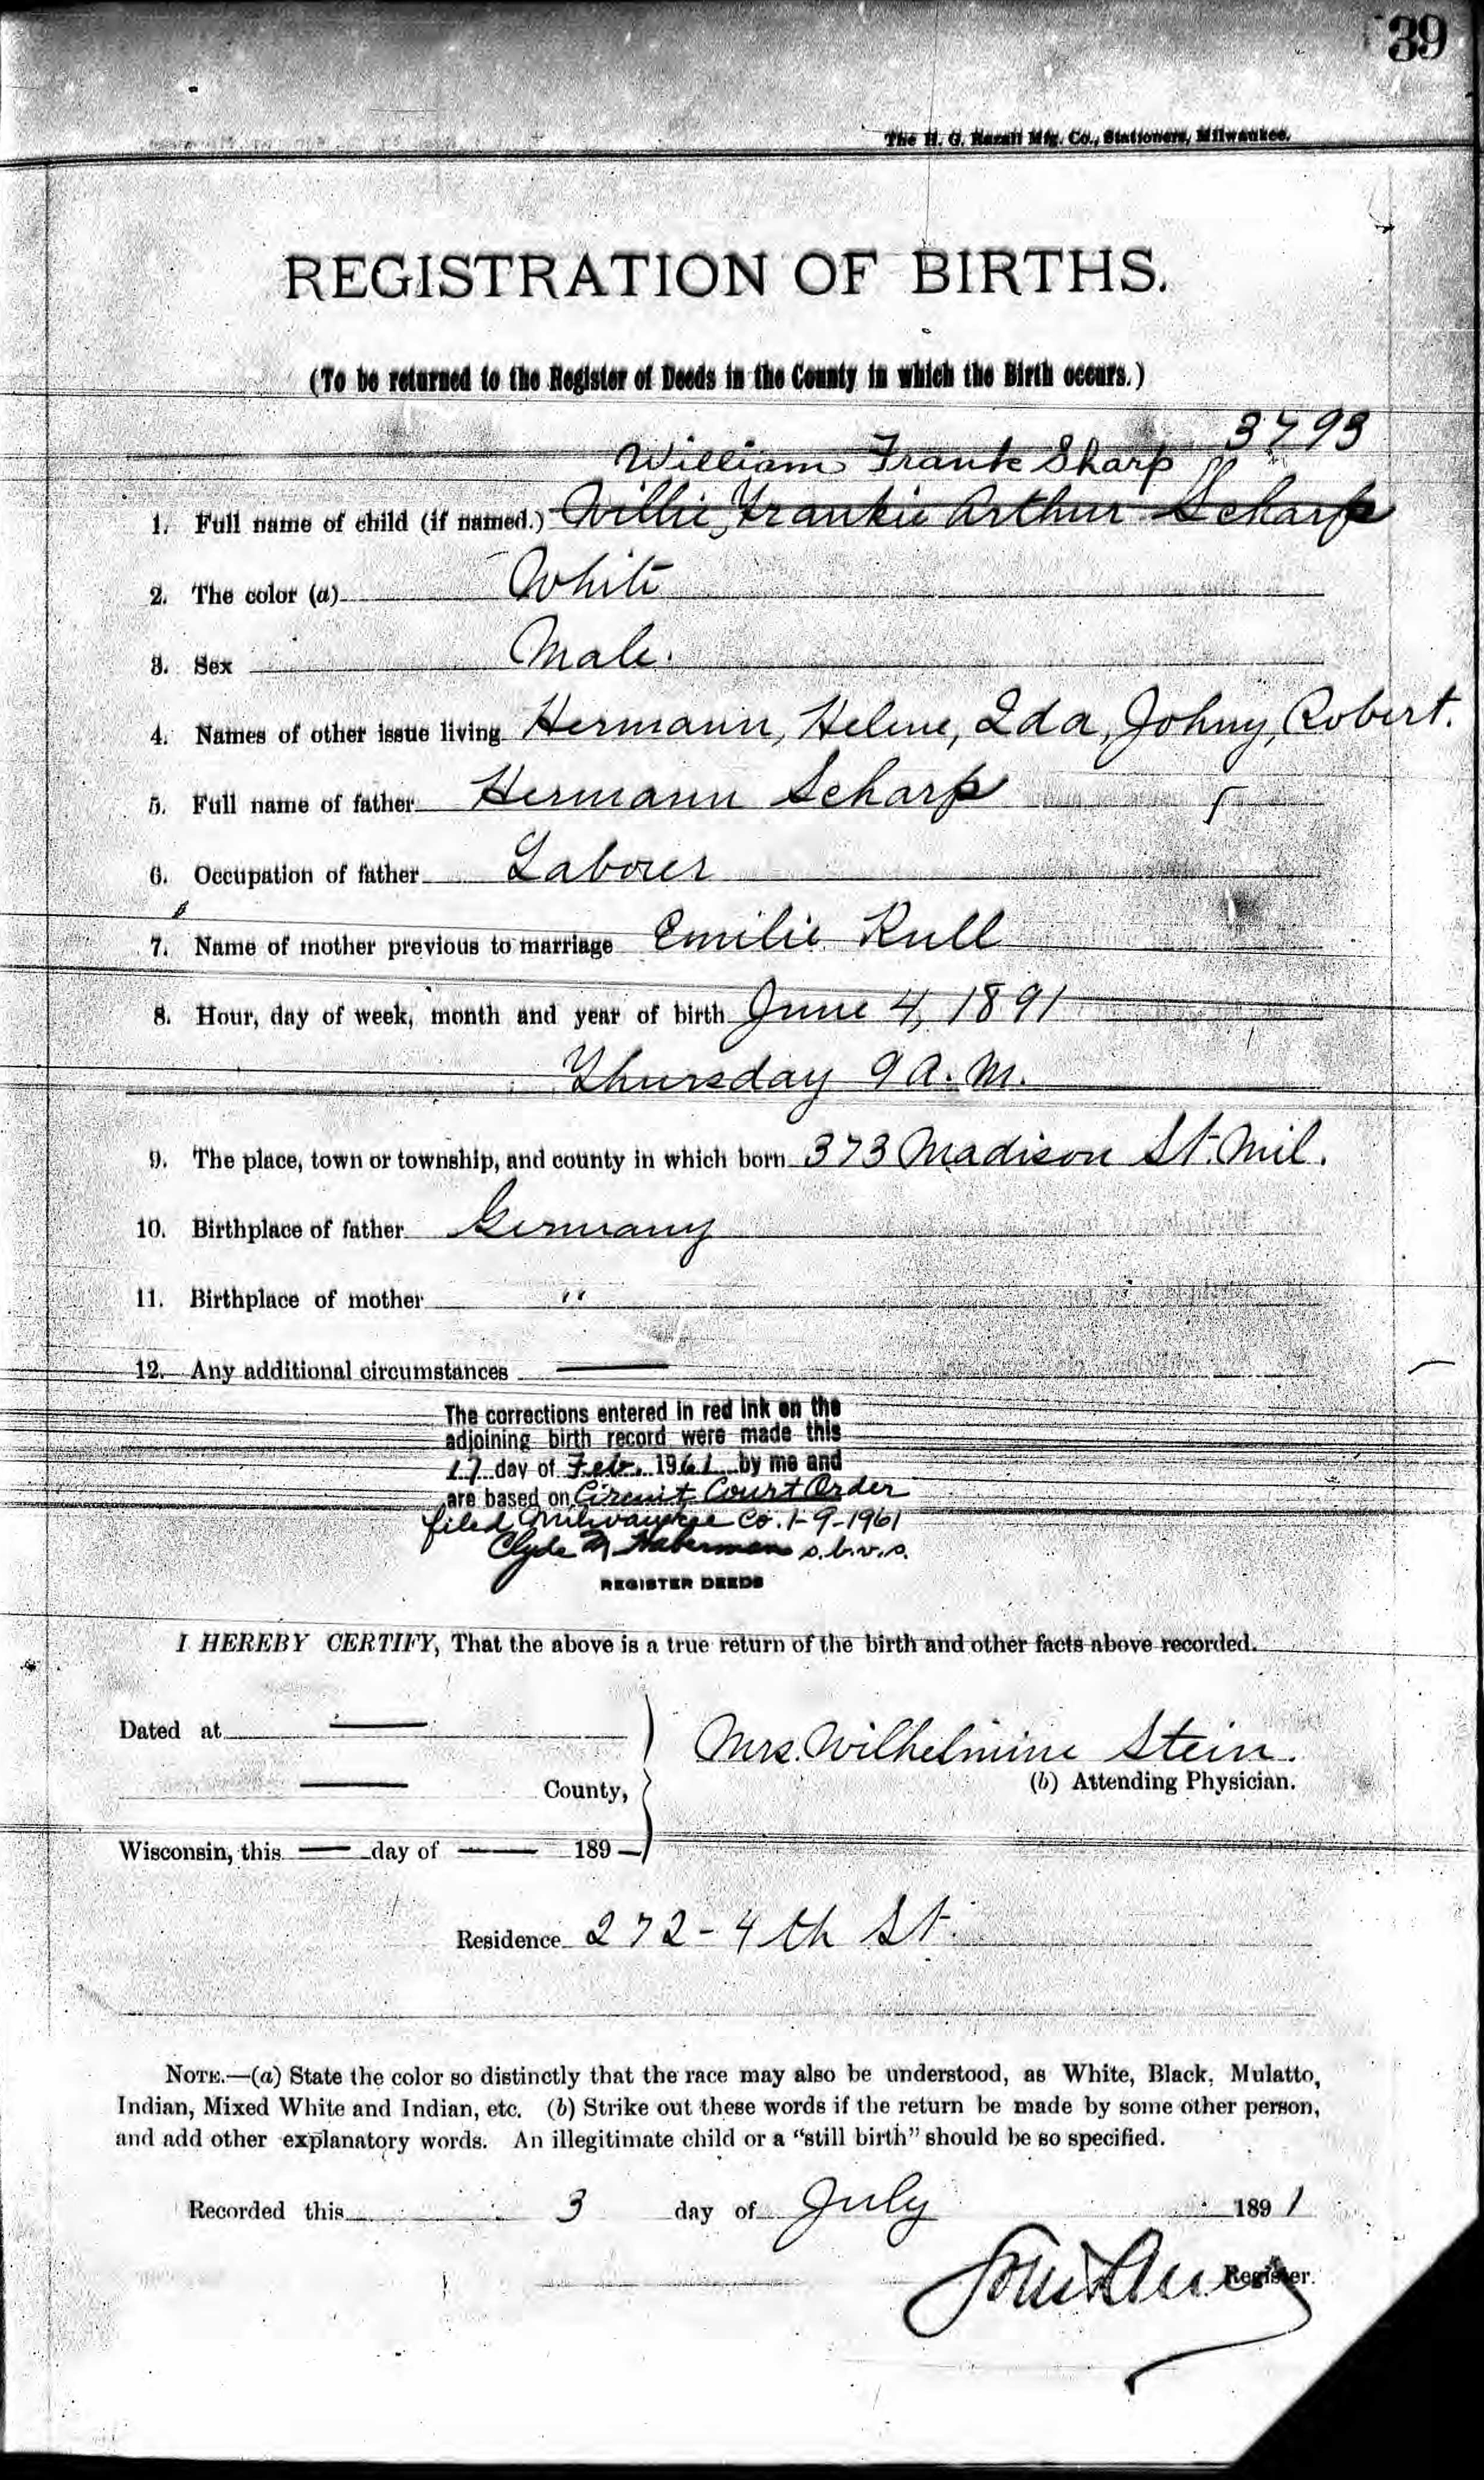 39
The H. G. Razall Mfg. Co., Stationers, Milwaukee.
REGISTRATION OF BIRTHS.
(To be returned to the Register of Deeds in the County in which the Birth occurs.)
3793
William Frank Sharp
1. Full name of child (if named.) Willie, Frankie Arthur Scharp
2. The color (a) White
3. Sex Male.
4. Names of other issue living Hermann, Helene, Ida, Johny, Robert.
5. Full name of father Hermann Scharp 5
6. Occupation of father Labourer
7. Name of mother previous to marriage Emilie Rull
8. Hour, day of week, month and year of birth June 4, 1891
Thursday 9 A.M.
9. The place, town or township, and county in which born 373 Madison St. Mil.
10. Birthplace of father Germany
11. Birthplace of mother "
12. Any additional circumstances —
The corrections entered in red ink on the
adjoining birth record were made this
17 day of Feb. 1961 by me and
are based on Circuit Court Order
filed Milwaukee Co. 1-9-1961
Clyde M Haberman s.b.v.s.
REGISTER DEEDS
I HEREBY CERTIFY, That the above is a true return of the birth and other facts above recorded.
Dated at —
— County,
Mrs. Wilhelmine Stein.
(b) Attending Physician.
Wisconsin, this — day of — 189 —
Residence 272 - 4th St.
NOTE.—(a) State the color so distinctly that the race may also be understood, as White, Black, Mulatto,
Indian, Mixed White and Indian, etc. (b) Strike out these words if the return be made by some other person,
and add other explanatory words. An illegitimate child or a "still birth" should be so specified.
Recorded this 3 day of July 1891
Register.